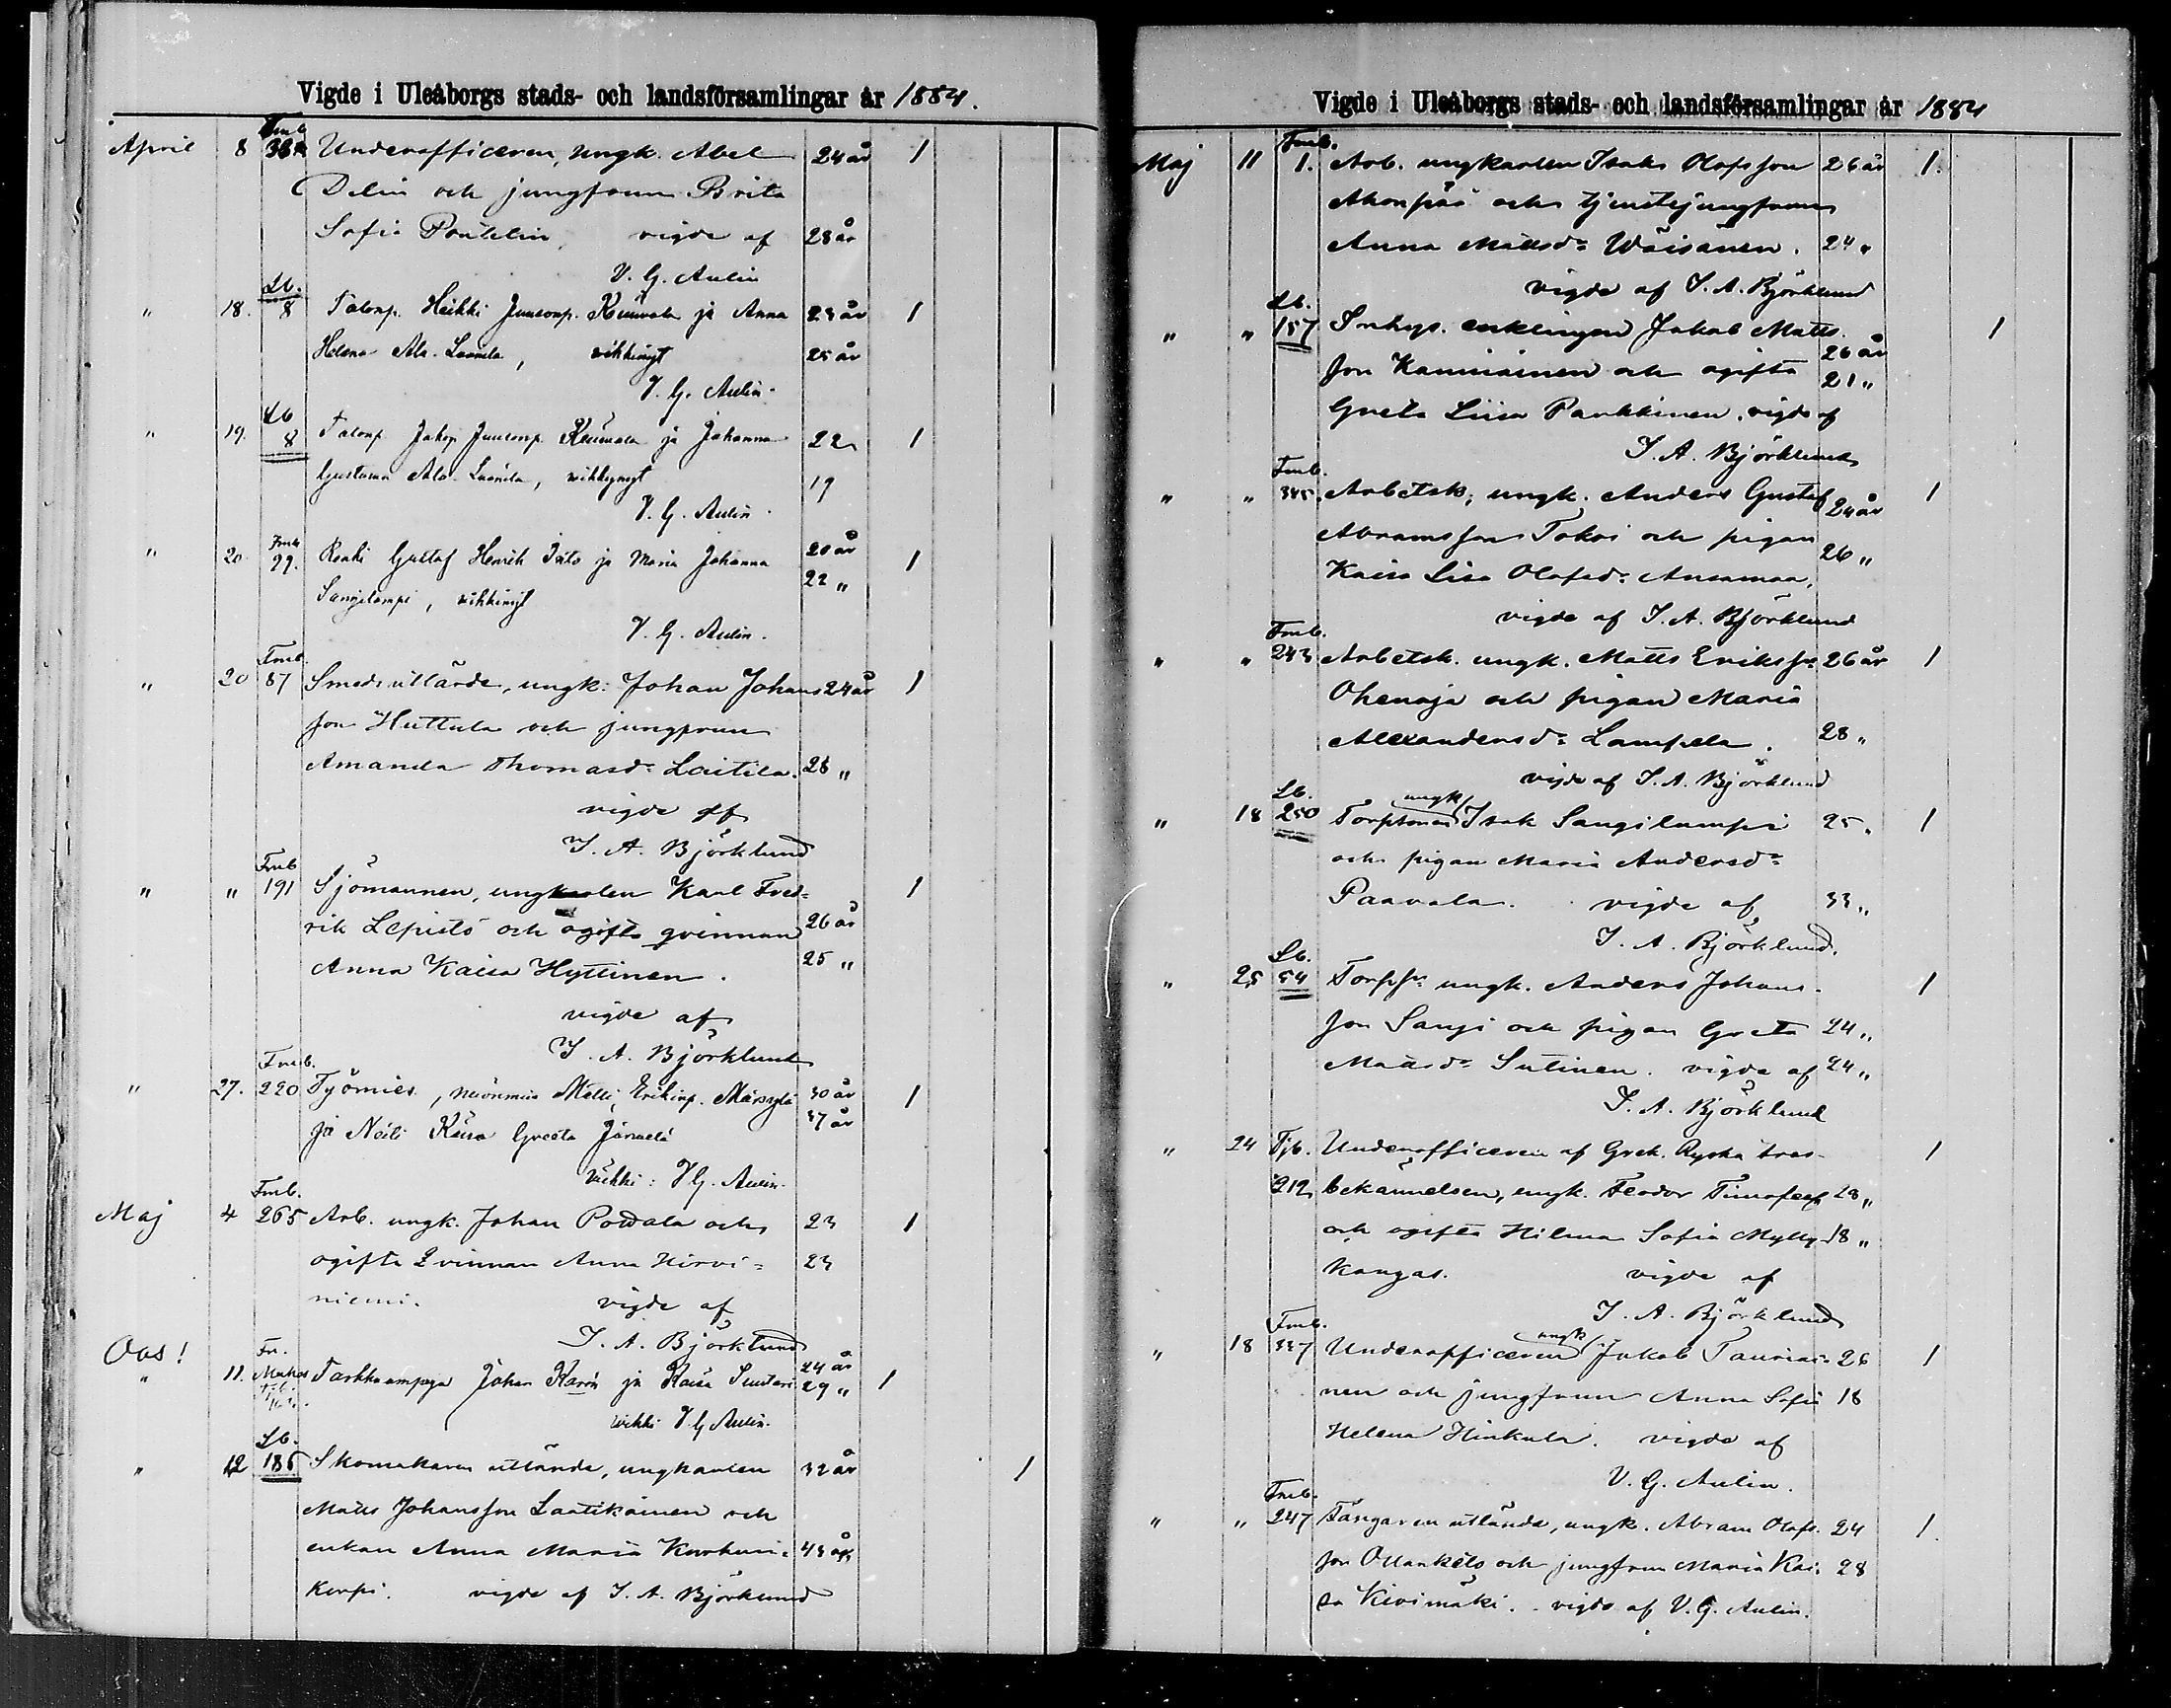 Vigde i Uleåborgs stads- och landsförsamlingar år 1884.
Fmb
April 8 38 Underofficeren, ungk. Abel 24 år 1
Delin och jungfrun Brita
Sofia vigde af 28 år
V. G. Aulin
Lb.
" 18. 8 Talonp. Heikki Juusonp. ja Anna 23 år 1
Helena Ala-Luonila, vihkinyt 25 år
V. G. Aulin.
Lb
" 19. 8 Talonp. Jakop Juusonp. ja Johanna 22 1
Gustava Ala-Luonila, vihkinynt 19
V. G. Aulin.
Fmb
" 20 29. Renki Gustaf Henrik ja Maria Johanna 20 år 1
Sangilampi, vihkinyt 22 "
V. G. Aulin.
Fmb.
" 20 87 Smeds utlärde, ungk. Johan Johans 24 år 1
son Huttula och jungfrun
Amanda Thomasd:r Laitila. 28 "
vigde af
I. A. Björklund
Fmb
" " 191 Sjömannen, ungkarlen Karl Fred= 1
rik Lepistö och ogifta qvinnan 26 år
Anna Kaisa Hyttinen. 25 "
vigde af
I. A. Björklund
Fmb.
" 27. 220 Työmies, nuorimies Matti Erikinp. 30 år 1
ja Neiti Kaisa Greeta 37 år
Vihki: V G. Aulin.
Fmb.
Maj 4 265 Arb. ungk. Johan och 23 1
ogifta Qvinnan Anna Hirvi= 23
niemi. vigde af
I. A. Björklund
Obs! Fr.
" 11. Muhos Tarkkampuja Johan Karén ja Kaisa 24 år 1
29 "
vihki V. G Aulin.
Lb.
" 12 186 Skomakaren utlärde, ungkarlen 32 år 1
Matts Johansson Laatikainen och
enkan Anna Maria Karhun= 43 år
korpi. vigde af I. A. Björklund
Vigde i Uleåborgs stads- och landsförsamlingar år 1884
Fmb.
Maj 11 1. Arb. ungkarlen Isak Olofsson 26 år 1.
Ahonpää och tjenstejungfrun
Anna Mattsd:r Wäisänen. 24 "
vigde af I. A. Björklund
Lb.
" " 157 Inhys. enklingen Jakob Matts- 1
26 år
son Kauniainen och ogifta 21 "
Greta Liisa Parkkinen. vigde af
I. A. Björklund
Fmb.
" " 345. Arbetsk. ungk. Anders Gustaf 24 år 1
Abramsson Tokoi och pigan
Kaisa Lisa Olofsd:r Ansamaa, 26 "
vigde af I. A. Björklund
Fmb.
" " 243 Arbetsk. ungk. Matts Eriksson 26 år 1
Ohenoja och pigan Maria
Alexandersd:r Lampela. 28 "
vigde af I. A. Björklund
Lb. ungk
" 18 250 Torpsonen Isak Sangilampi 25 " 1
och pigan Maria Andersd:r
Paavola. vigde af 33 "
I. A. Björklund.
Lb.
" 25 54 Torps. ungk. Anders Johans- 1
son Sangi och pigan Greta 24 "
Mattsd:r Sutinen. vigde af 24 "
I. A. Björklund
" 24 Tjb. Underofficeren af Grek. Ryska tros- 1
212 bekännelsen, ungk. Feodor Timofeef 28 "
och ogifta Hilma Sofia Mylly- 18 "
kangas. vigde af
I. A. Björklund
Fmb. ungk
" 18 337 Underofficeren Jakob Tauriai- 26 1
nen och jungfrun Anna Sofia 18
Helena Hinkula. vigde af
V. G. Aulin.
Fmb.
" " 247 utlärde, ungk. Abram Olofs- 24 1
son och jungfrun Maria Kai- 28
sa Kivimäki. vigde af V. G. Aulin.